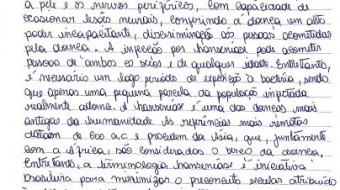 a pele e os nervos periféricos, com capacidade de
ocasionar lesões neurais, conferindo à doença um alto
poder incapacitante, discriminação às pessoas acometidas
pela doença. A infecção por hanseníase pode acometer
pessoas de ambos os sexos e de qualquer idade. Entretanto,
é necessário um logo período de exposição à bactéria, sendo
que apenas uma pequena parcela da população infectada
realmente adoece. A hanseníase é uma das doenças mais
antigas da humanidade. As referências mais remotas
datam de 600 a.c e procedem da Ásia, que, juntamente
com a África, são consideradas o berço da doença.
Entretanto, a terminologia hanseníase é iniciativa
brasileira para minimizar o preconceito secular atribuído